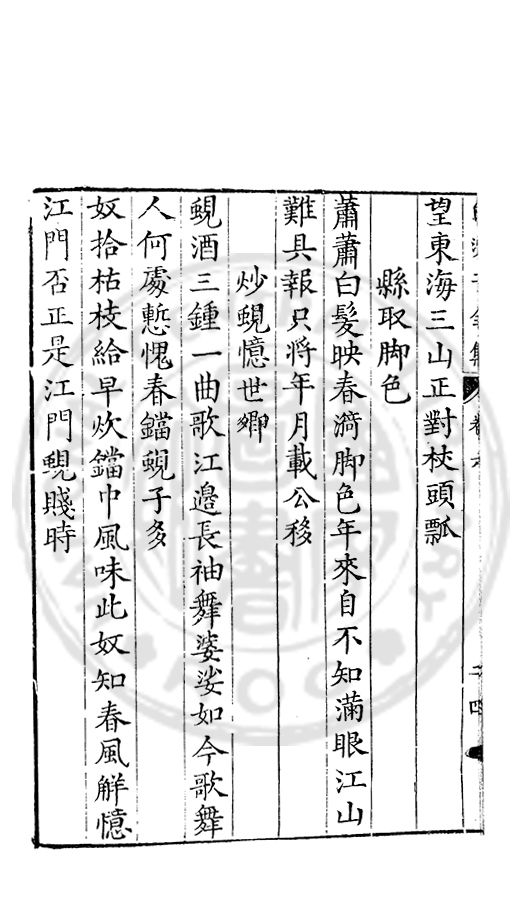 望東海三山正對杖頭瓢
縣取脚色
蕭蕭白髪映春漪脚色年來自不知滿眼江山
難具報只將年月載公移
炒蜆憶世卿
蜆酒三鍾一曲歌江邊長袖舞婆娑如今歌舞
人何處慙愧春鐺蜆子多
奴拾枯枝給早炊鐺中風味此奴知春風觧憶
江門否正是江門蜆賤時